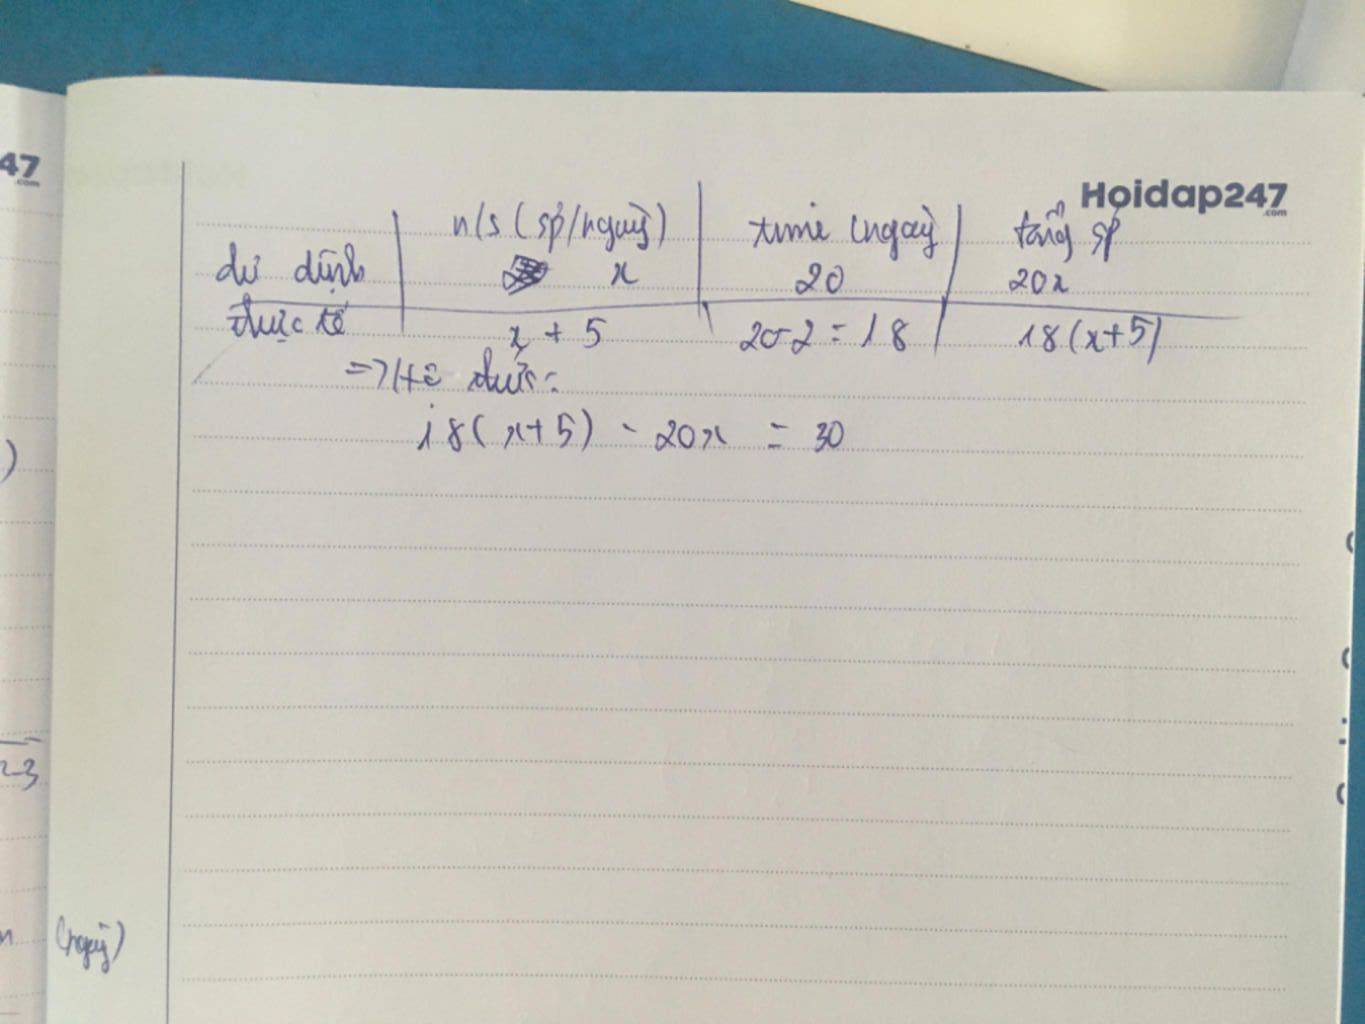 47
.com
Hoidap247
.com
n/s (sp/ngày) time (ngày) tổng sp
dự định x 20 20x
thực tế x + 5 20-2 = 18 18(x+5)
=> Hệ thức:
18(x+5) - 20x = 30
)
23
(ngày)